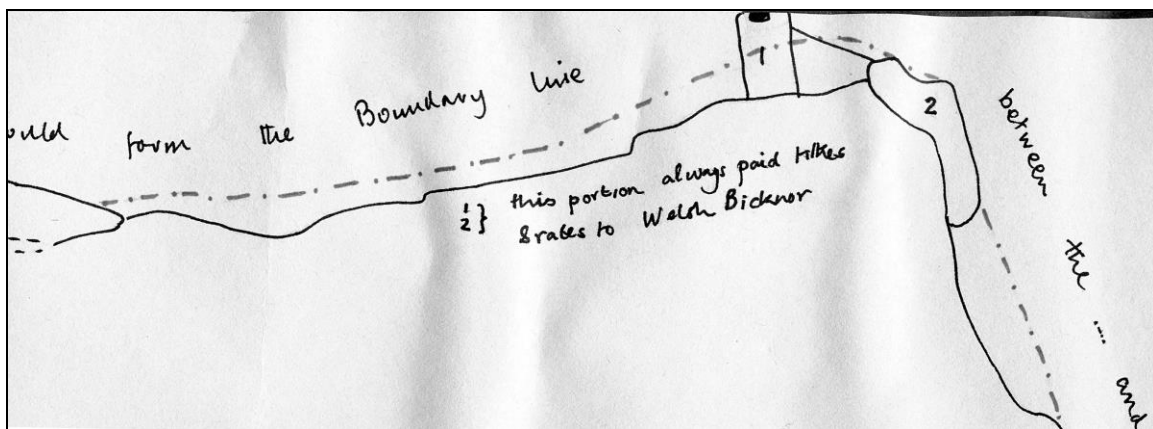 ould form the Boundary line between the .... and
1
2
1
2 } this portion always paid tithes
& rates to Welsh Bicknor